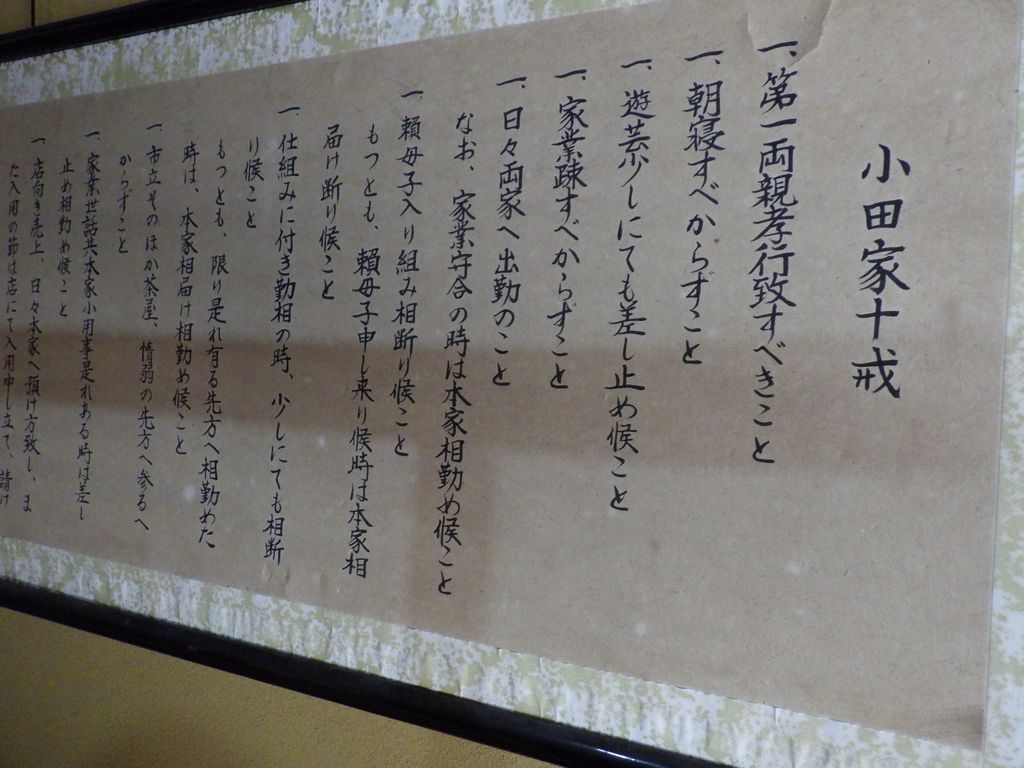 小田家十戒
一、第一両親孝行致すべきこと
一、朝寝すべからずこと
一、遊芸少しにても差し止め候こと
一、家業疎すべからずこと
一、日々両家へ出勤のこと
なお、家業守合の時は本家相勤め候こと
一、頼母子入り組み相断り候こと
もっとも、頼母子申し来り候時は本家相
届け断り候こと
一、仕組みに付き勤相の時、少しにても相断
り候こと
もっとも、限り是れ有る先方へ相勤めた
時は、本家相届け相勤め候こと
一、市立そのほか茶屋、惰弱の先方へ参るへ
からずこと
一、家業世話共本家小用事是れある時は差し
止め相勤め候こと
一、店向き売上、日々本家へ預け方致し、ま
た入用の節は店にて入用申し立て、請け